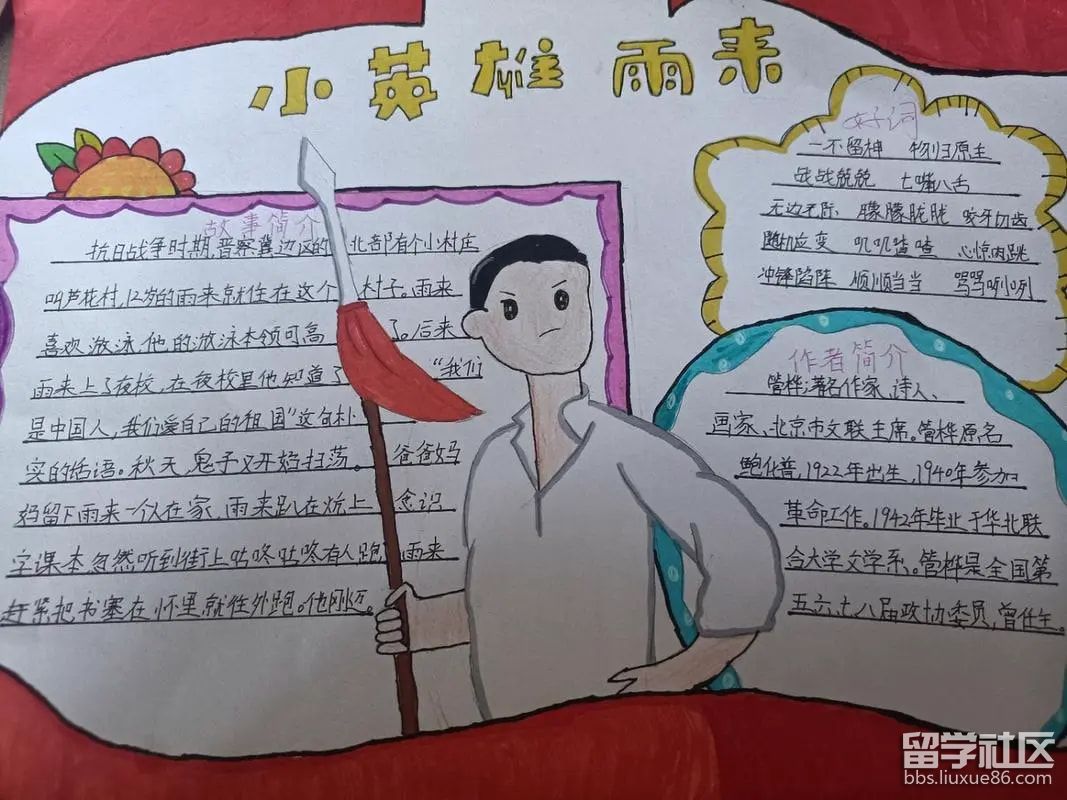 小英雄 雨来
故事简介
抗日战争时期,晋察冀边区的 北部有个小村庄
叫芦花村,12岁的雨来就住在这个 村子。雨来
喜欢游泳,他的游泳本领可高 了。后来
雨来上了夜校,在夜校里他知道了 “我们
是中国人,我们爱自己的祖国”这句朴
实的话语。秋天,鬼子又开始扫荡。 爸爸妈
妈留下雨来一个人在家,雨来趴在炕上 念识
字课本,忽然听到街上咕咚咕咚有人跑 雨来
赶紧把书塞在怀里就往外跑。他刚迈。
好词
一不留神 物归原主
战战兢兢 七嘴八舌
无边无际 朦朦胧胧 咬牙切齿
随机应变 叽叽喳喳 心惊肉跳
冲锋陷阵 顺顺当当 骂骂咧咧
作者简介
管桦:著名作家、诗人、
画家、北京市文联主席。管桦原名
鲍化普,1922年出生,1940年参加
革命工作。1942年毕业于华北联
合大学文学系。管桦是全国第
五、六、七、八届政协委员,曾任
留学社区
bbs.liuxue86.com